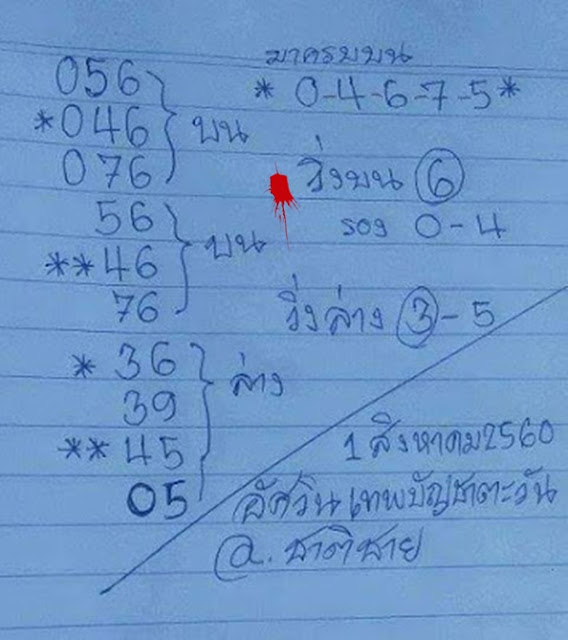 มาครบบน
056
* 0-4-6-7-5 *
*046 บน
076
วิ่งบน 6
56
รอง 0-4
**46 บน
76
วิ่งล่าง 3-5
*36
39 ล่าง
**45
1 สิงหาคม 2560
05
อัศวินเทพบัญชาตะวัน
อ. ชาติชาย